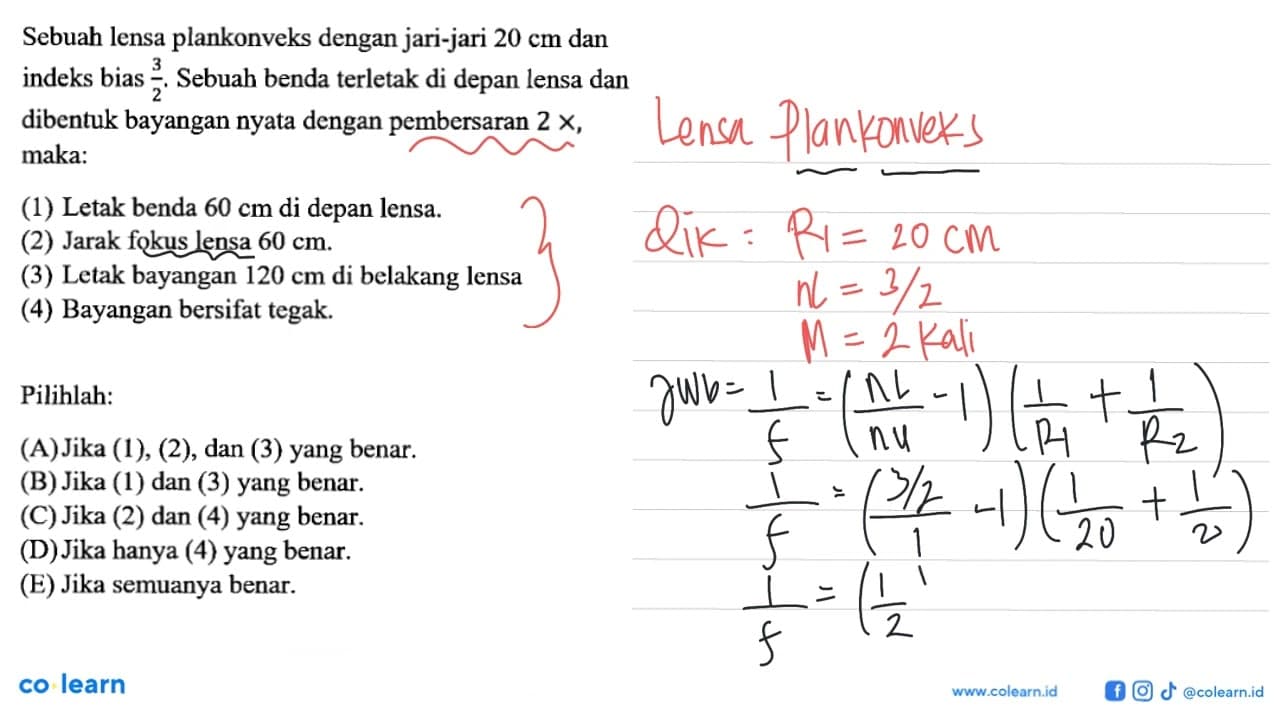 Sebuah lensa plankonveks dengan jari-jari 20 cm dan
indeks bias 3/2. Sebuah benda terletak di depan lensa dan
dibentuk bayangan nyata dengan pembersaran 2 ×,
maka:
(1) Letak benda 60 cm di depan lensa.
(2) Jarak fokus lensa 60 cm.
(3) Letak bayangan 120 cm di belakang lensa
(4) Bayangan bersifat tegak.
Pilihlah:
(A) Jika (1), (2), dan (3) yang benar.
(B) Jika (1) dan (3) yang benar.
(C) Jika (2) dan (4) yang benar.
(D) Jika hanya (4) yang benar.
(E) Jika semuanya benar.
Lensa Plankonveks
Dik : R1 = 20 cm
nL = 3/2
M = 2 kali
Jwb = 1/f = (nL/nu - 1) (1/R1 + 1/R2)
1/f = (3/2/1 - 1) (1/20 + 1/
1/f = (1/2
co learn
www.colearn.id
@colearn.id